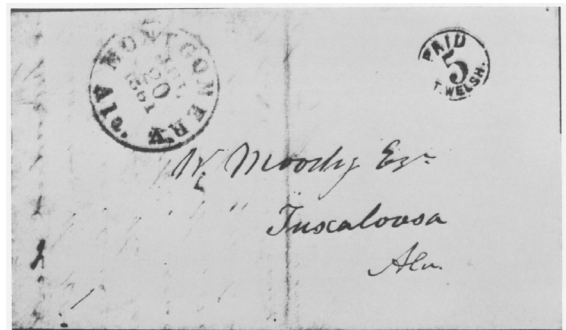 MONTGOMERY Ala.
JUL
20
1861
PAID
5
T. WELSH.
W. Moody Esqr
Tuscaloosa
Ala.